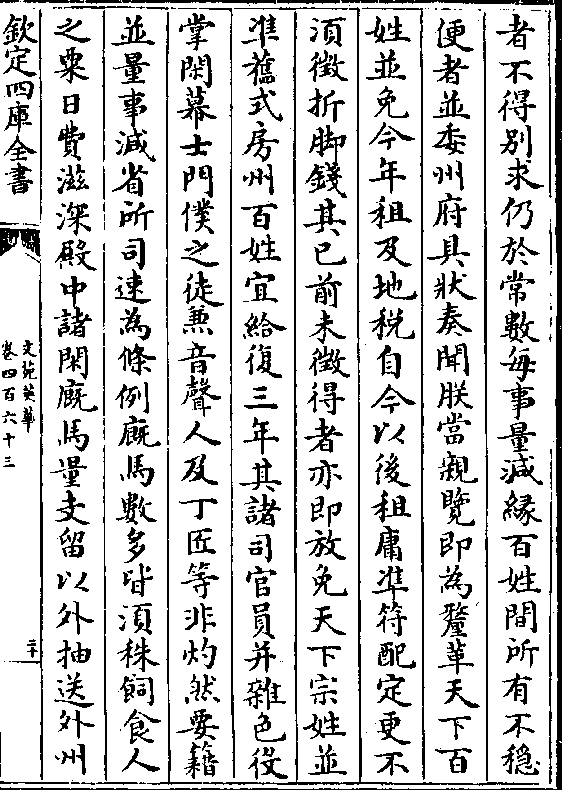 者不得别求仍於常數每事量減縁百姓間所有不穩
便者並委州府具狀奏聞朕當親覽即為釐革天下百
姓並免今年租及地税自今以後租庸準符配定更不
須徴折脚錢其已前未徴得者亦即放免天下宗姓並
準舊式房州百姓宜給復三年其諸司官員并雜色役
掌閑幕士門僕之徒兼音聲人及丁匠等非灼然要籍
並量事減省所司速為條例廐馬數多皆須秣飼食人
之粟日費滋深殿中諸閑廐馬量支留以外抽送外州
欽定四庫全書
文苑英華
卷四百六十三
二十